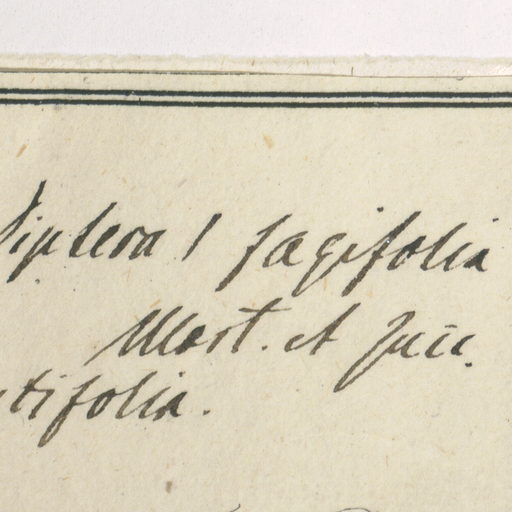 Diptera / fagifolia
Mart. et Zucc.
tifolia.